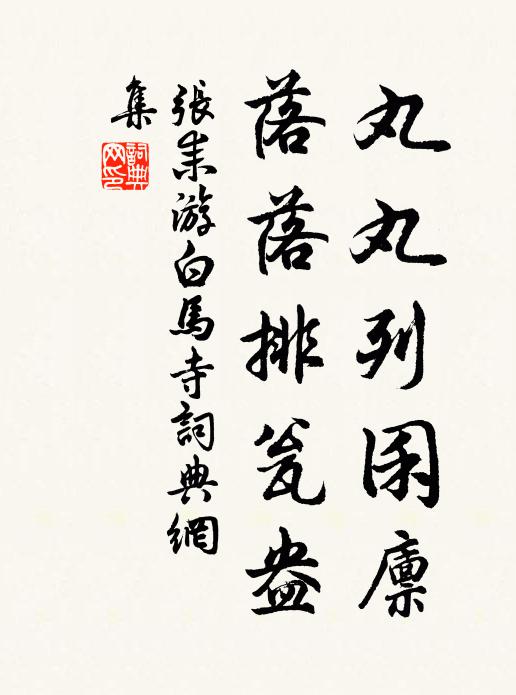 丸丸列囷廪
落落排瓮盎
張耒游白馬寺詞典網
集
詞典网印